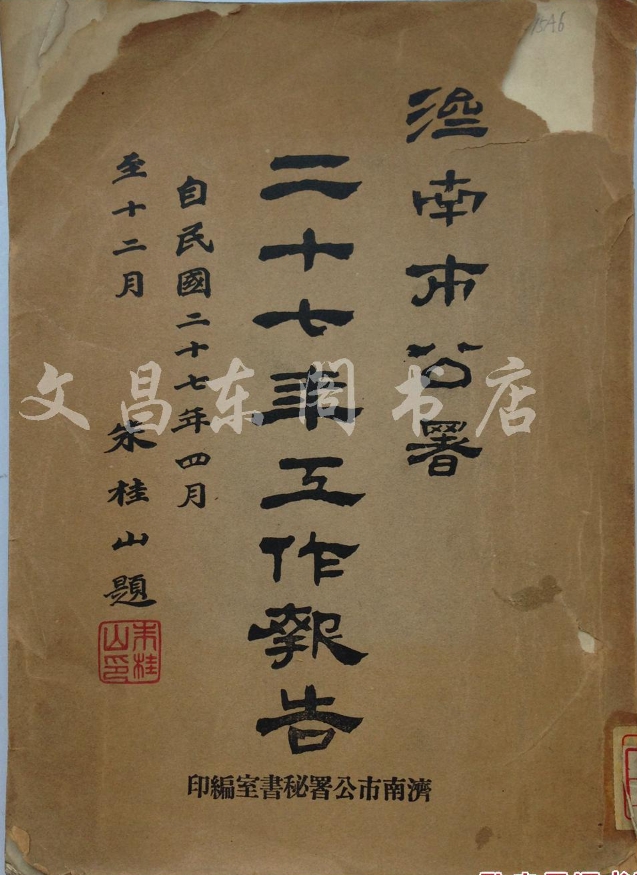 濟南市公署
二十七年工作報告
自民國二十七年四月
至十二月 朱桂山題
朱桂山印
濟南市公署秘書室編印
文昌东阁书店